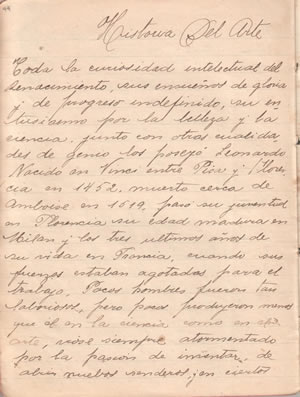 Historia Del Arte
Toda la curiosidad intelectual del
renacimiento, sus ensueños de gloria
y de progreso indefinido, su en
tusiasmo por la belleza y la
ciencia, junto con otras cualida
des de genio los poseyó Leonardo
Nacido en Vinci entre Pisa y Floren
cia en 1452, muerto cerca de
Amboise en 1519, pasó su juventud
en Florencia su edad madura en
Milan y los tres ultimos años de
su vida en Francia, cuando sus
fuerzas estaban agotadas para el
trabajo. Pocos hombres fueron tan
laboriosos, pero pocos produjeron menos
que el en la ciencia como en el
arte, viose siempre atormentado
por la pasión de inventar, de
abrir nuebos senderos; en ciertos